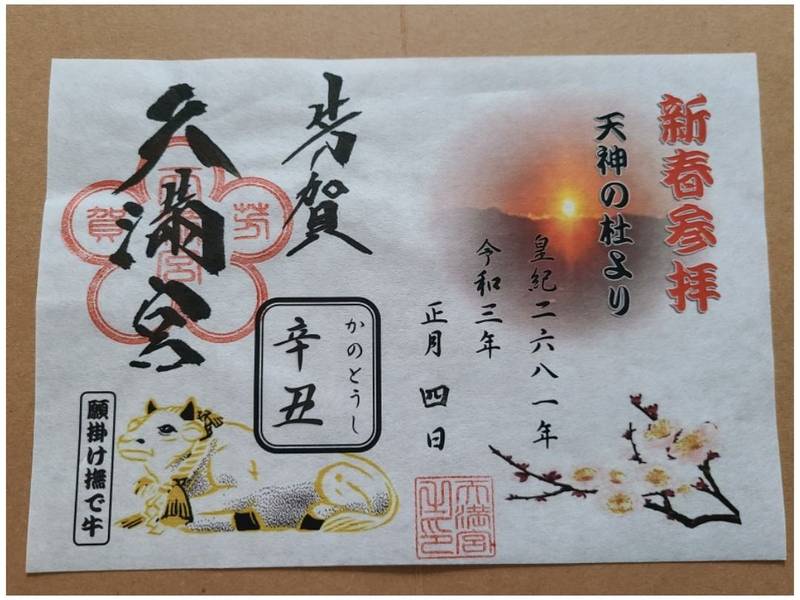 新春参拝
天神の杜より
皇紀二六八一年
令和三年
正月 四日
芳賀
天満宮
芳
賀
かのとうし
辛丑
願掛け撫で牛
天満宮
之印